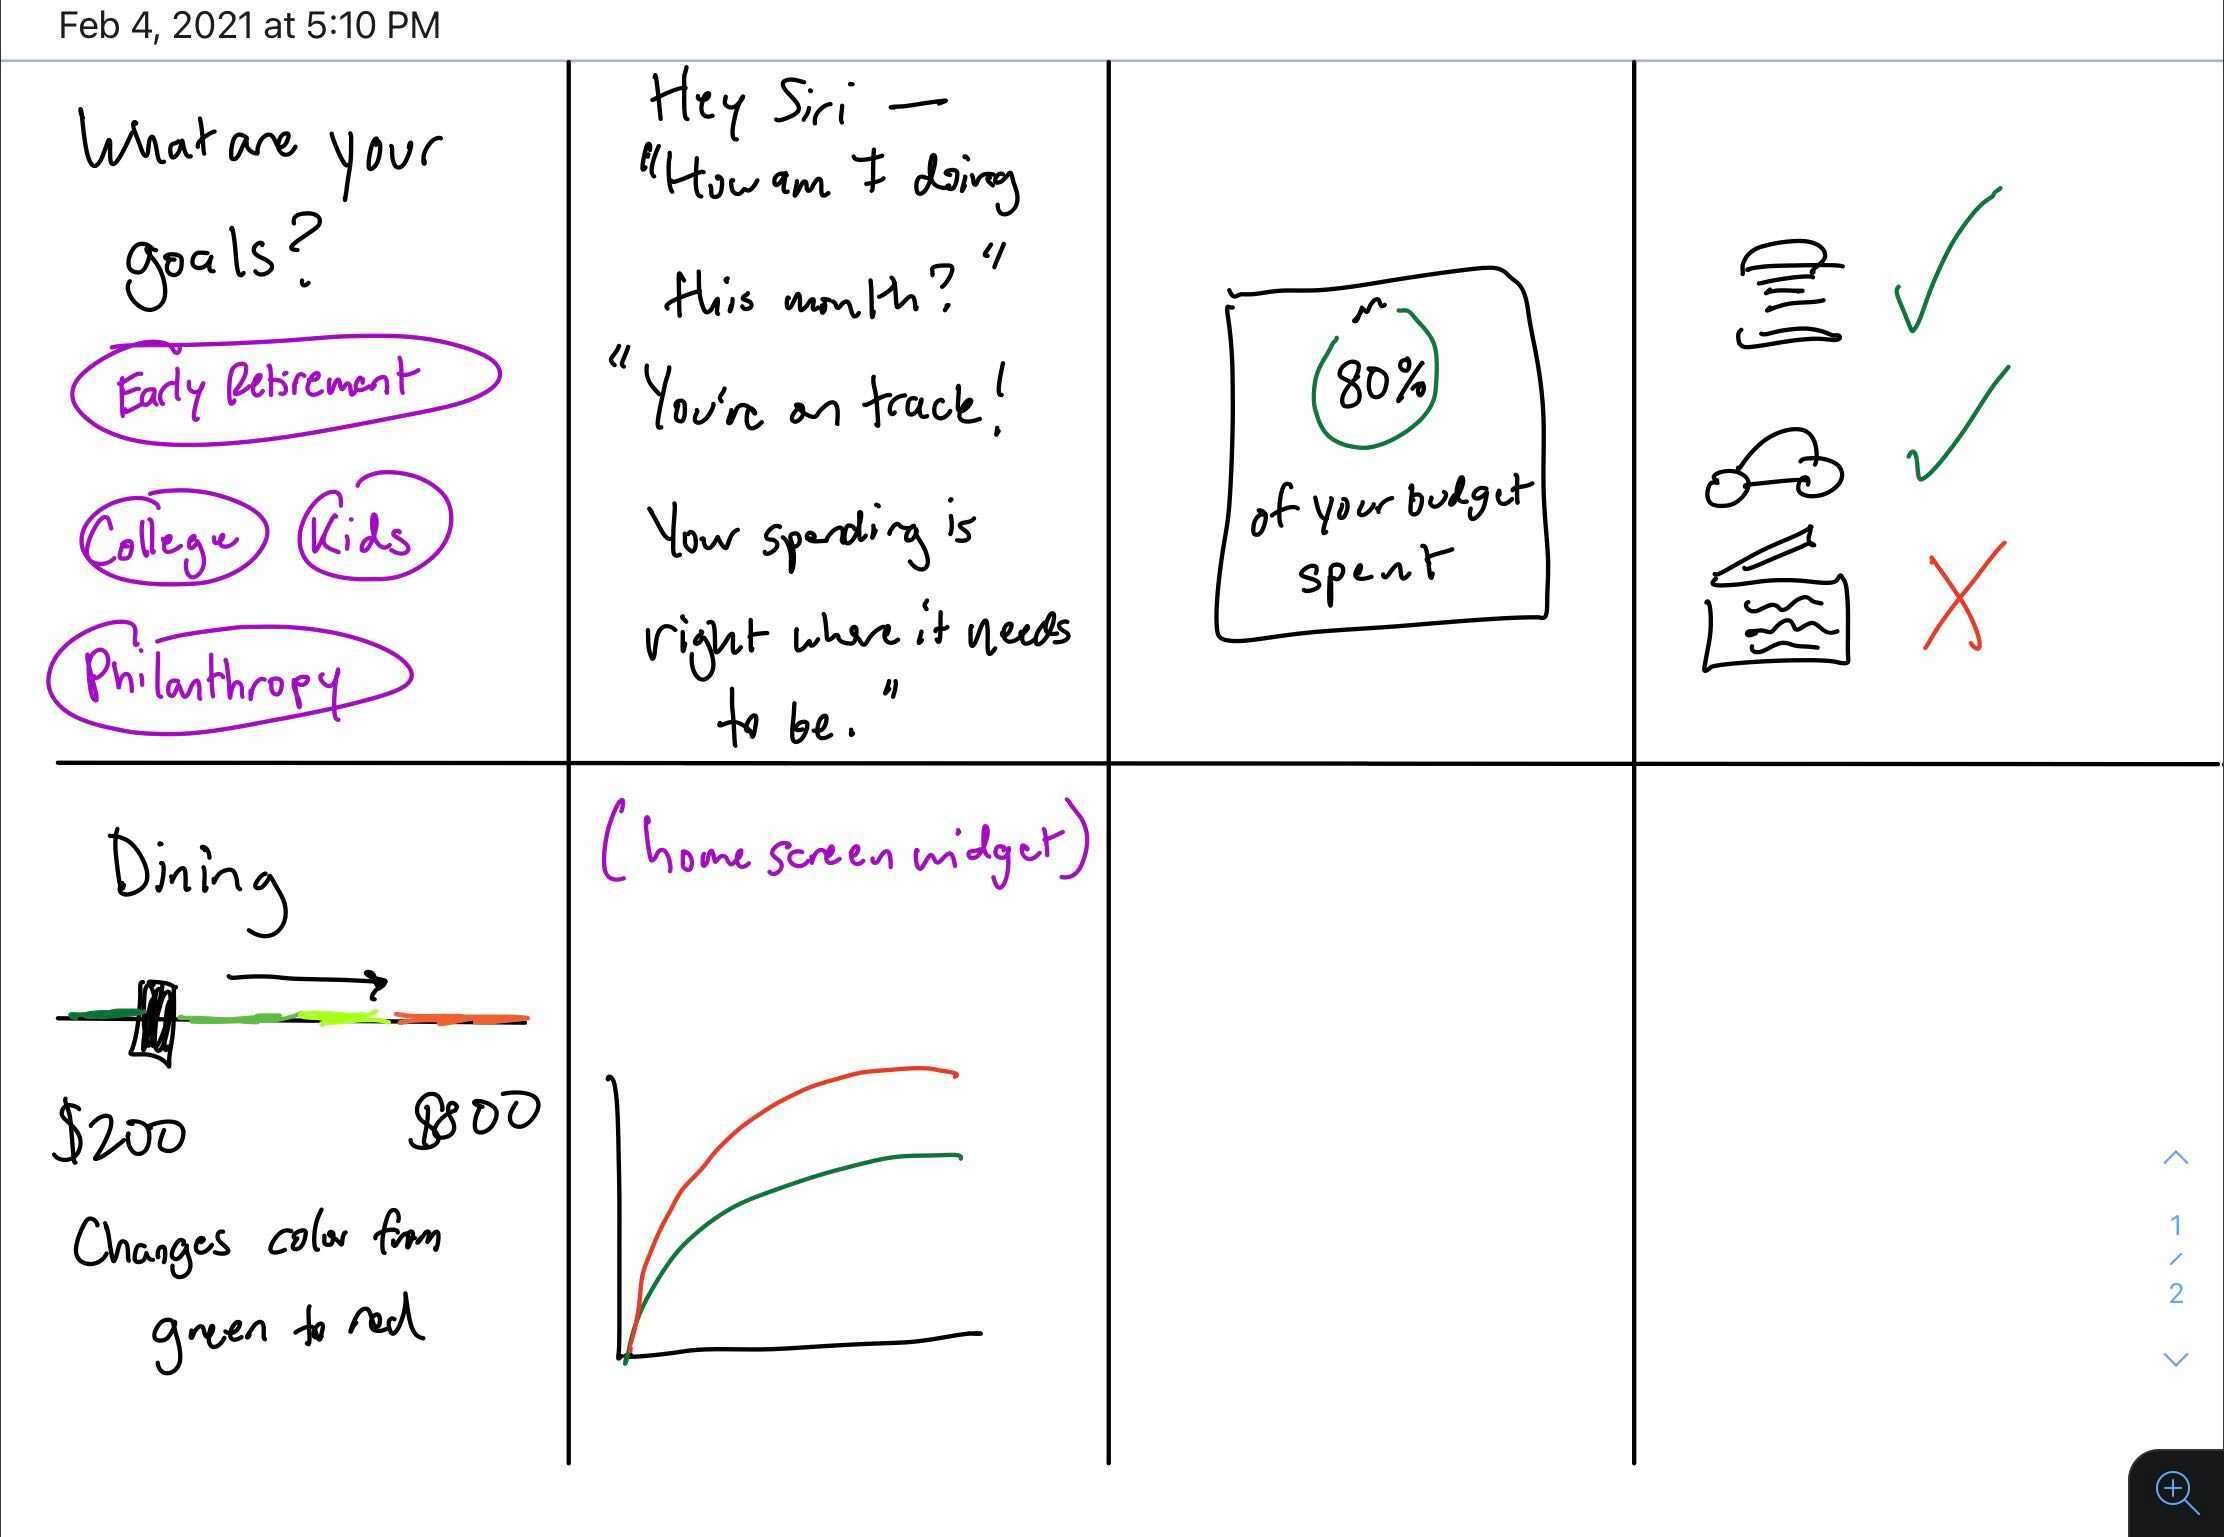 Feb 4, 2021 at 5:10 PM
What are your
goals?
Early Retirement
College Kids
Philanthropy
Hey Siri —
"How am I doing
this month?"
"You're on track!
Your spending is
right where it needs
to be."
80%
of your budget
spent
Dining
$200 $800
Changes color from
green to red
(home screen widget)
1
/
2